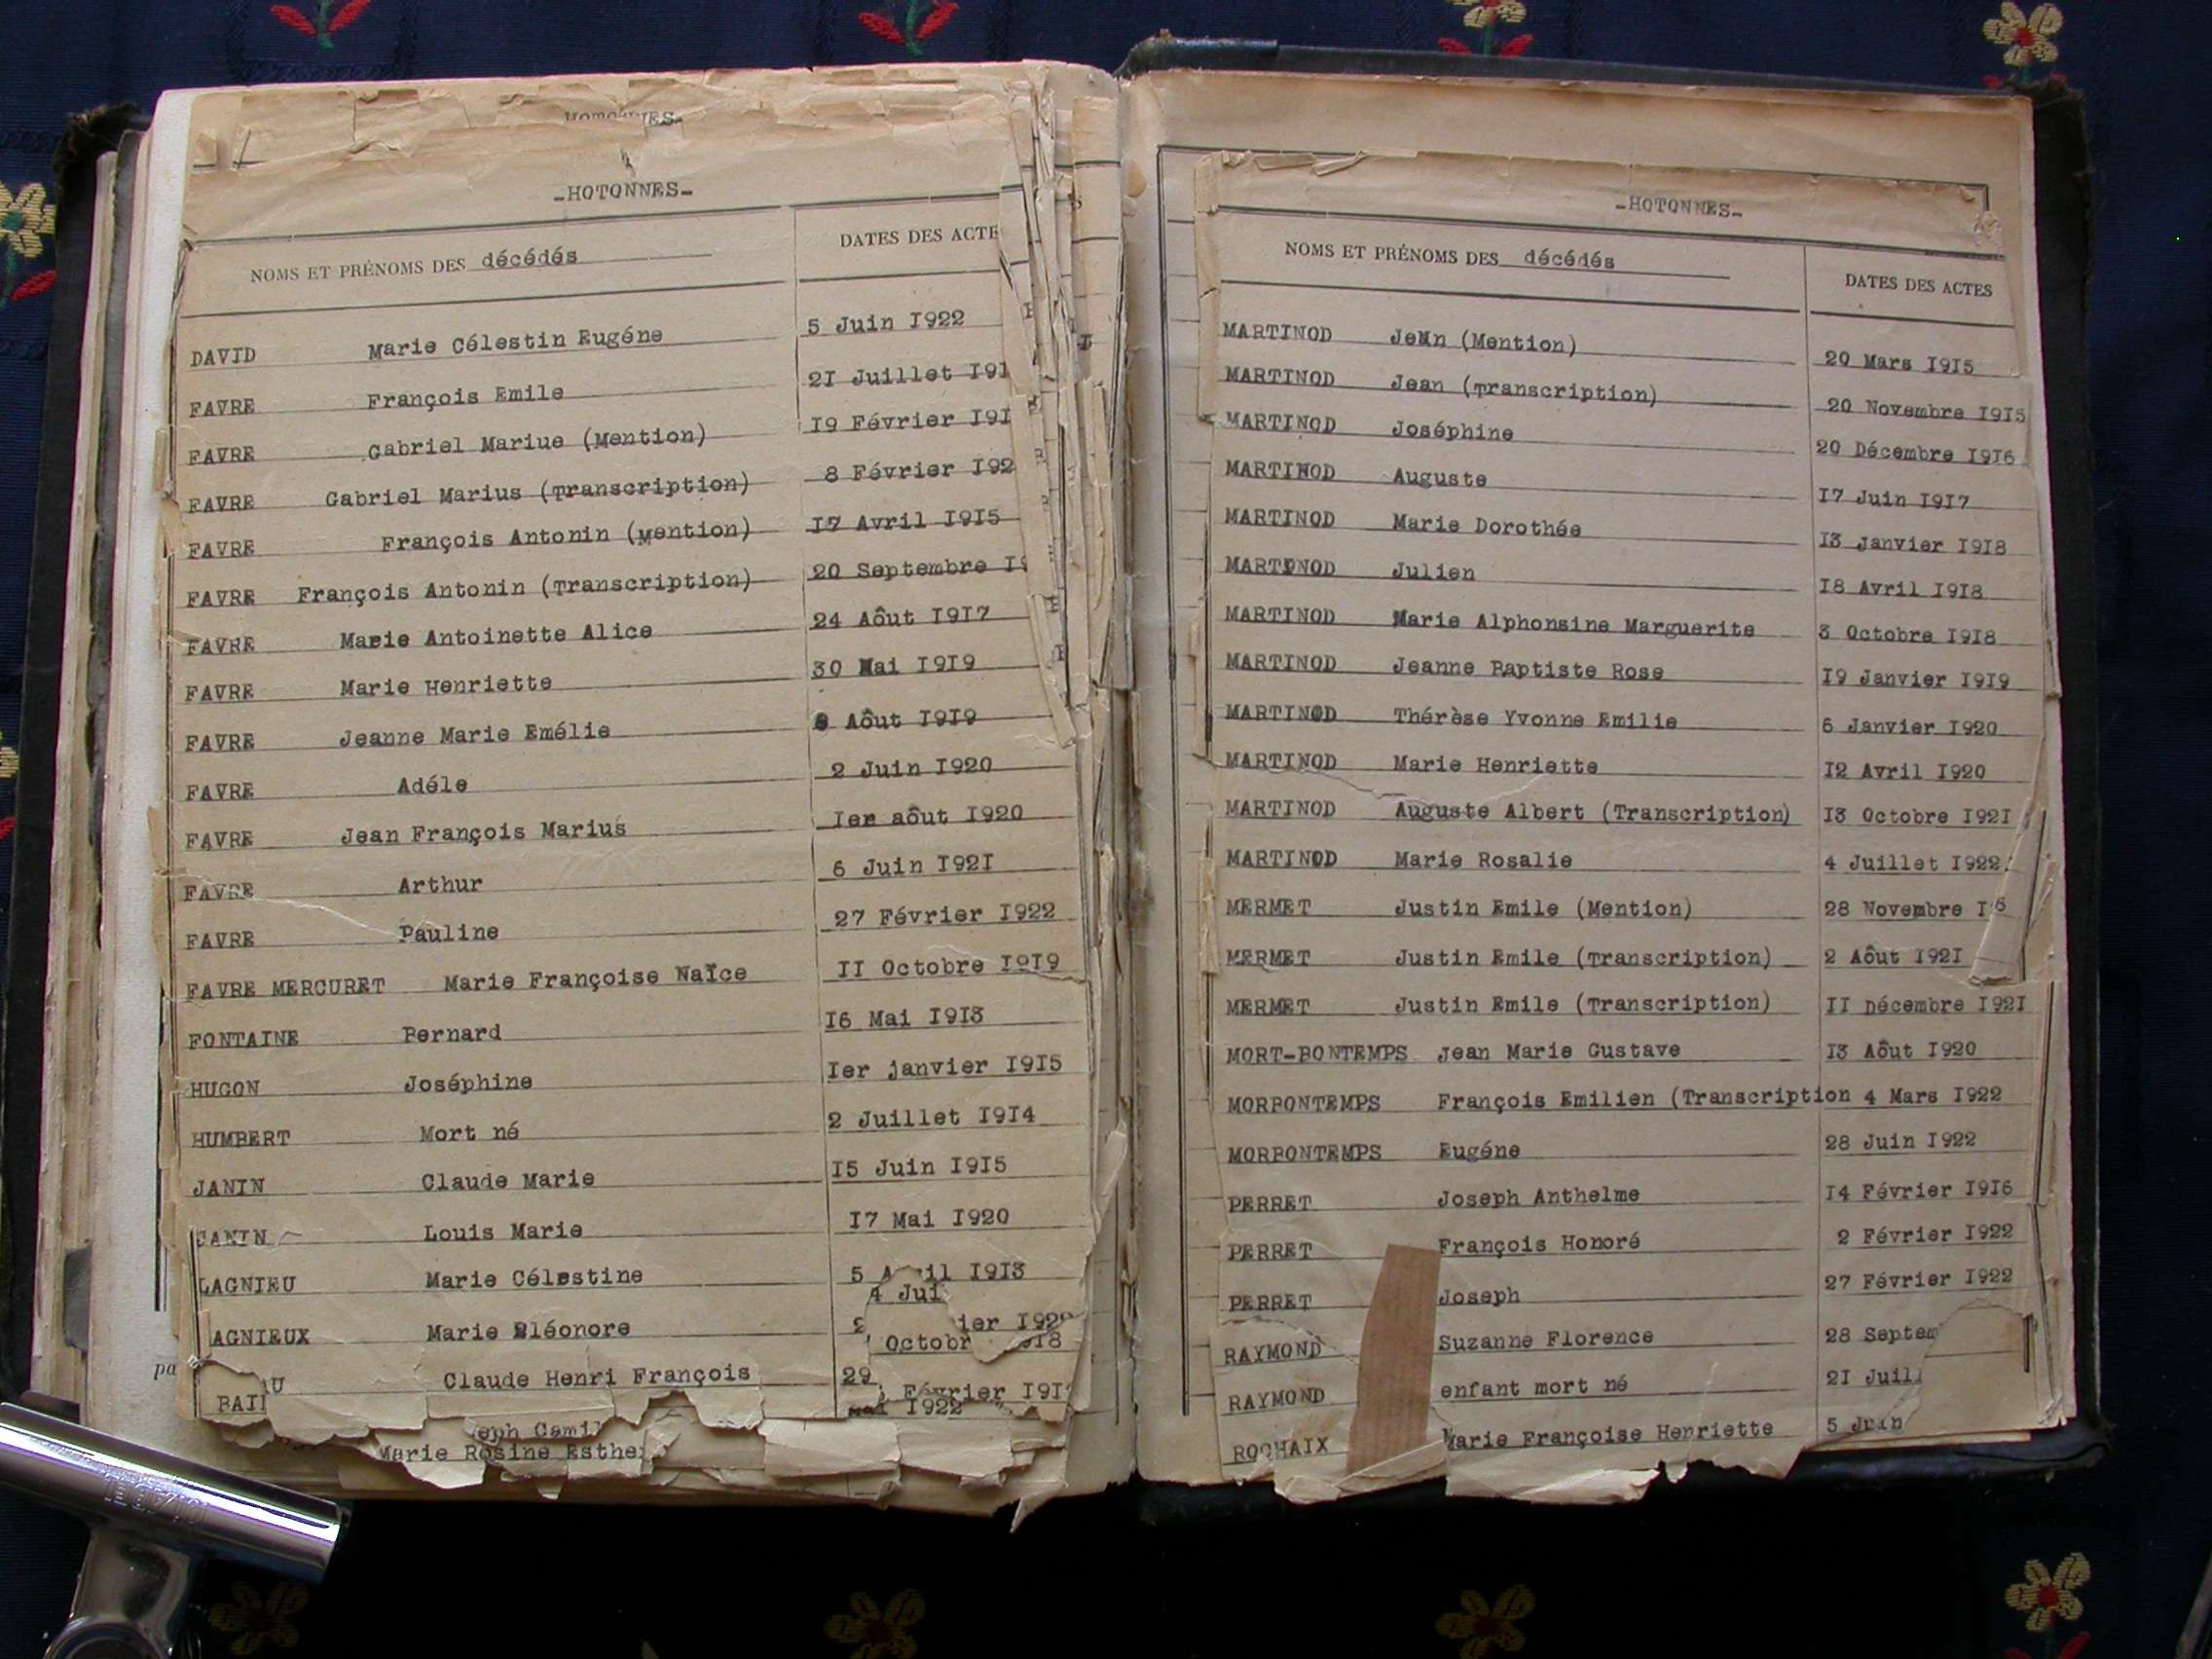 -HOTONNES-
NOMS ET PRÉNOMS DES décédés DATES DES ACTE
DAVID Marie Célestin Eugéne 5 Juin I922
FAVRE François Emile 2I Juillet I9I
FAVRE Gabriel Mariue (Mention) I9 Février I9I
FAVRE Gabriel Marius (Transcription) 8 Février I92
FAVRE François Antonin (Mention) I7 Avril I9I5
FAVRE François Antonin (Transcription) 20 Septembre I9
FAVRE Marie Antoinette Alice 24 Aôut I9I7
FAVRE Marie Henriette 30 Mai I9I9
FAVRE Jeanne Marie Emélie Aôut I9I9
FAVRE Adéle 2 Juin I920
FAVRE Jean François Marius Ier aôut I920
FAVRE Arthur 6 Juin I92I
FAVRE Pauline 27 Février I922
FAVRE MERCURET Marie Françoise Naïce II Octobre I9I9
FONTAINE Bernard I6 Mai I9I3
HUGON Joséphine Ier janvier I9I5
HUMBERT Mort né 2 Juillet I9I4
JANIN Claude Marie I5 Juin I9I5
JANIN Louis Marie I7 Mai I920
LAGNIEU Marie Célestine 5 Avril I9I3
4 Jui
AGNIEUX Marie Eléonore 2 ier I920
Octobr I8
U Claude Henri François 29
BAI Février I9I
Mai I922
eph Camil
Marie Rosine Esthe
-HOTONNES-
NOMS ET PRÉNOMS DES décédés DATES DES ACTES
MARTINOD Jean (Mention) 20 Mars I9I5
MARTINOD Jean (Transcription) 20 Novembre I9I5
MARTINOD Joséphine 20 Décembre I9I6
MARTINOD Auguste I7 Juin I9I7
MARTINOD Marie Dorothée I3 Janvier I9I8
MARTINOD Julien I8 Avril I9I8
MARTINOD Marie Alphonsine Marguerite 3 Octobre I9I8
MARTINOD Jeanne Baptiste Rose I9 Janvier I9I9
MARTINOD Thérèse Yvonne Emilie 6 Janvier I920
MARTINOD Marie Henriette I2 Avril I920
MARTINOD Auguste Albert (Transcription) I3 Octobre I92I
MARTINOD Marie Rosalie 4 Juillet I922
MERMET Justin Emile (Mention) 28 Novembre I
MERMET Justin Emile (Transcription) 2 Aôut I92I
MERMET Justin Emile (Transcription) II Décembre I92I
MORT-BONTEMPS Jean Marie Gustave I3 Aôut I920
MORBONTEMPS François Emilien (Transcription 4 Mars I922
MORBONTEMPS Eugéne 28 Juin I922
PERRET Joseph Anthelme I4 Février I9I6
PERRET François Honoré 2 Février I922
PERRET Joseph 27 Février I922
RAYMOND Suzanne Florence 28 Septem
RAYMOND enfant mort né 2I Juill
ROCHAIX Marie Françoise Henriette 5 Juin